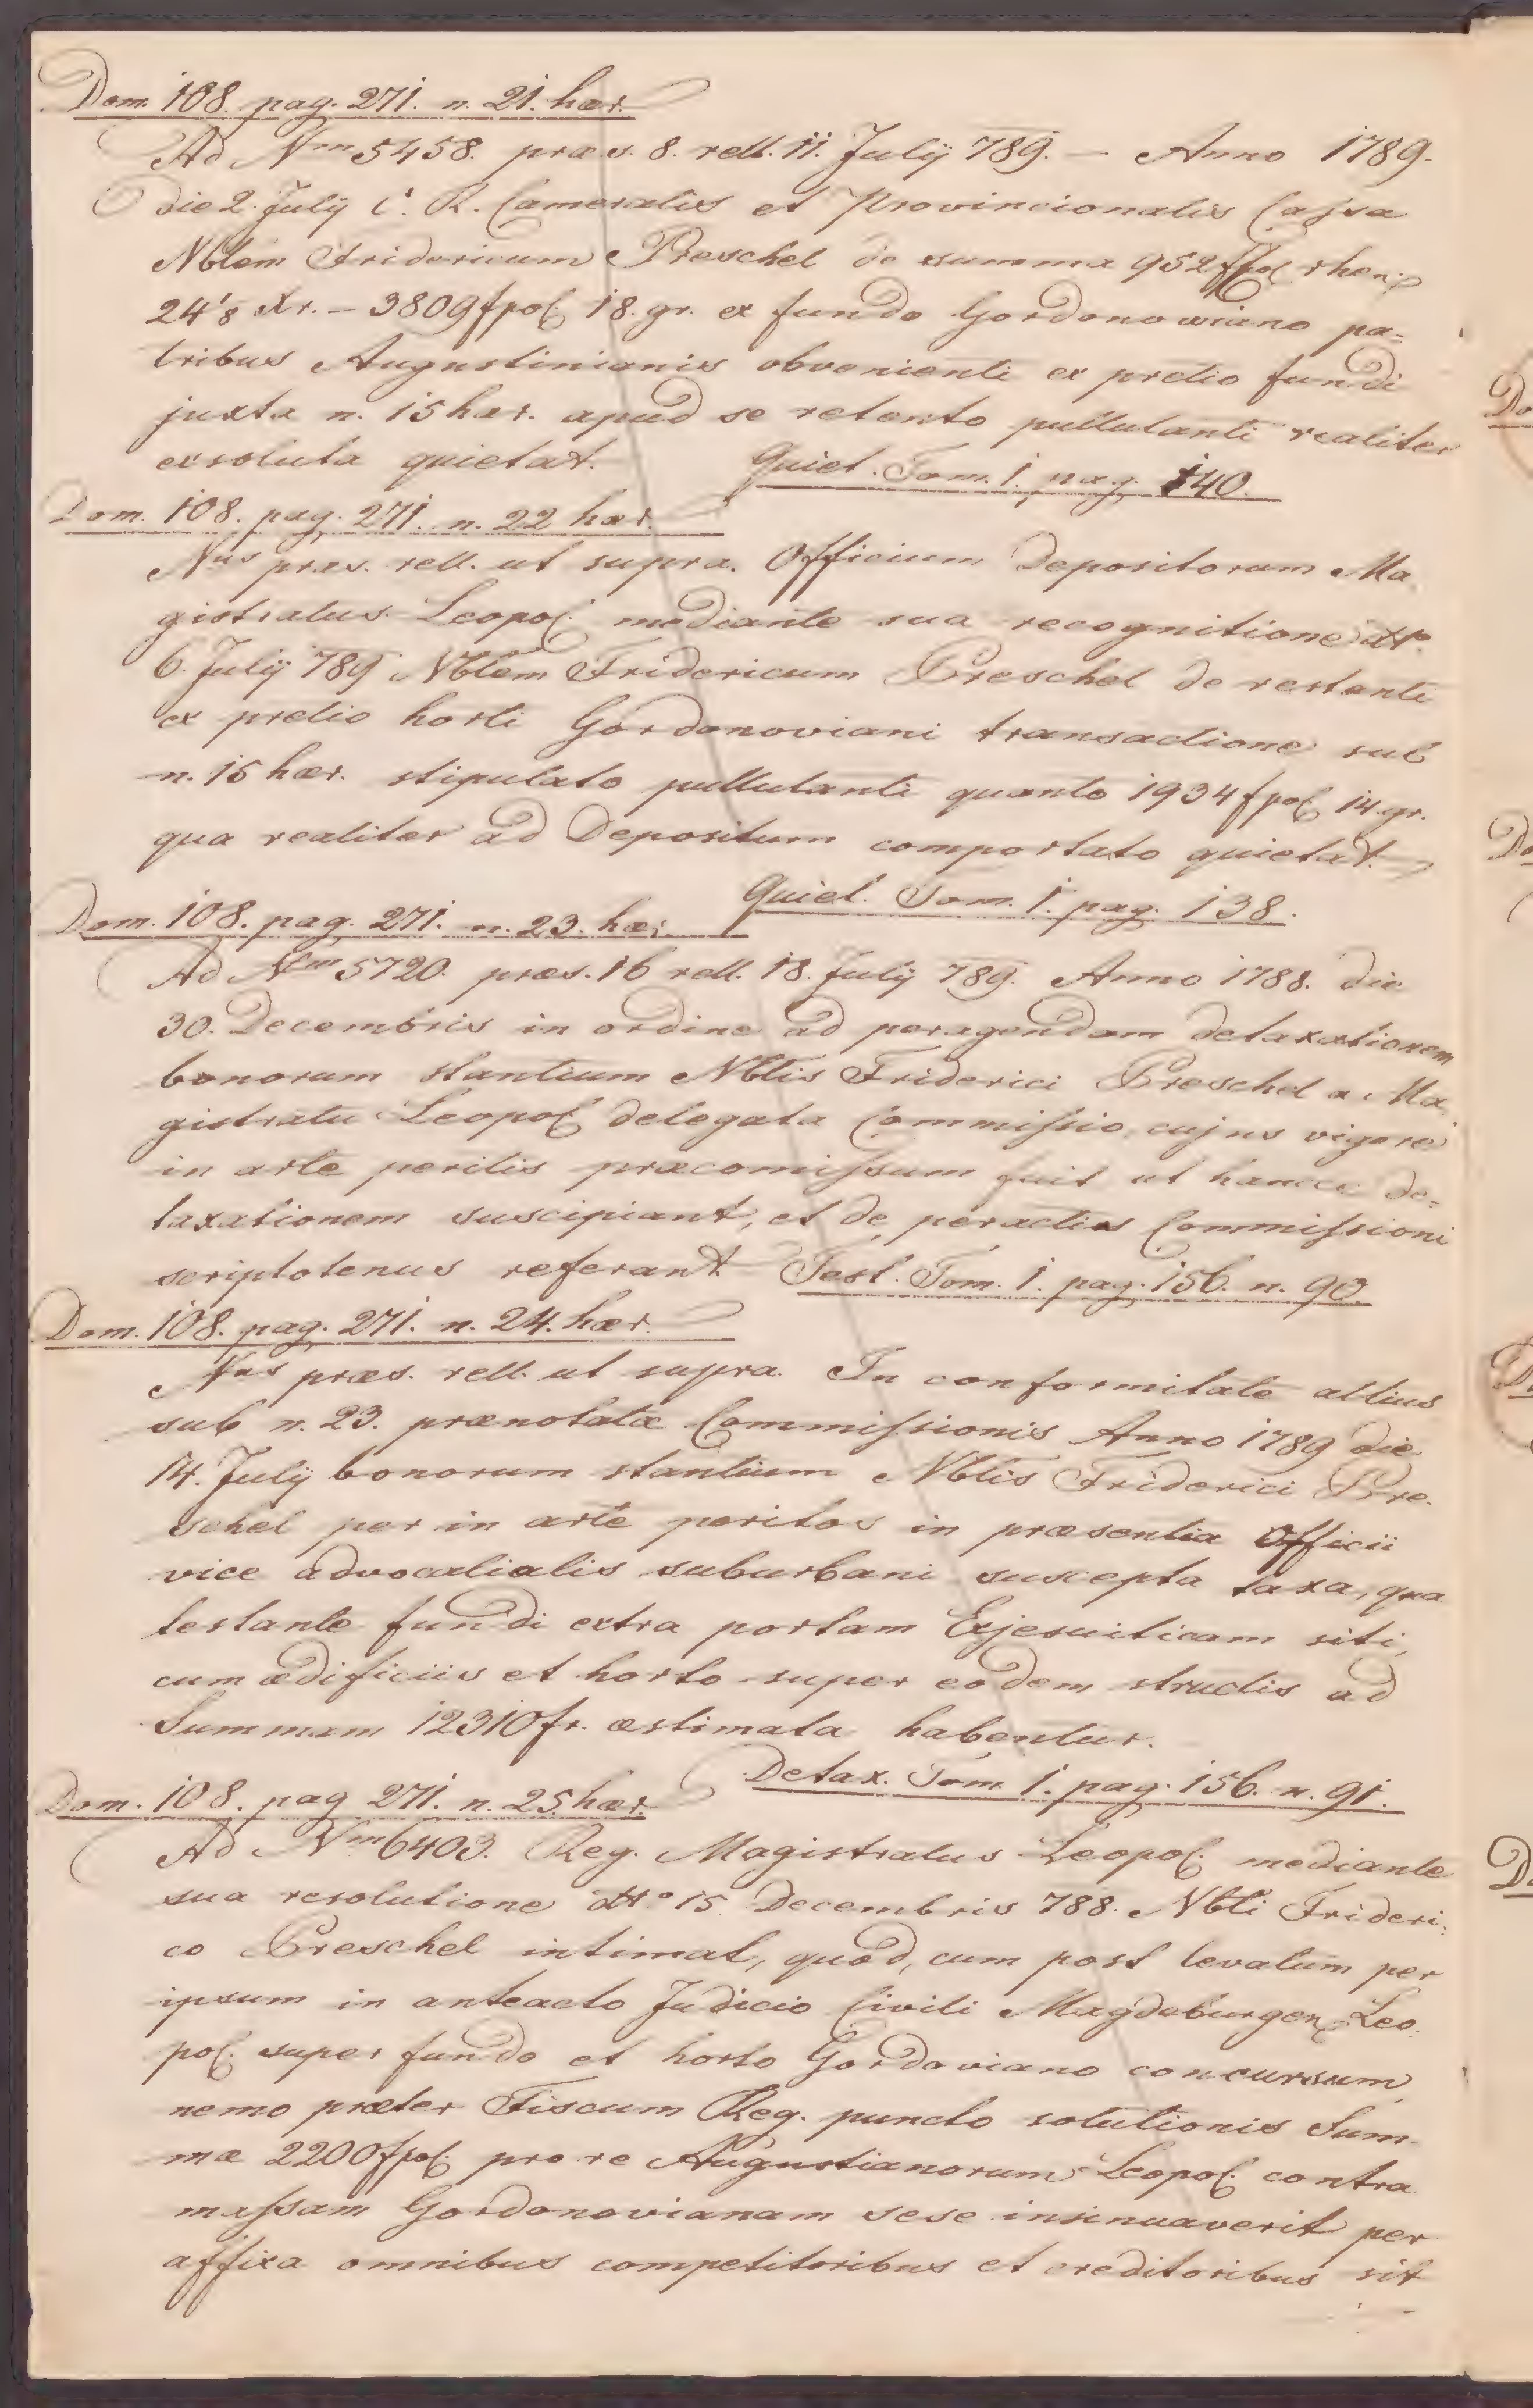 Dom. 108. pag. 271. n. 21. hær.
Ad Nm 5458. præs. 8. rell. 11. Julÿ 789. — Anno 1789.
die 2. Julÿ C. R. Cameralis et Provincionalis Cassa
Nblem Fridericum Preschel de summa 952 fpol rhen.
24 4/8 Xr. – 3809 fpol. 18. gr. ex fundo Gordonowiano pa-
tribus Augustinianis obvenienti ex pretio fundi
juxta n. 15 hær. apud se retento pullulanti realiter
exsoluta quietat. Quiet. Tom. 1. pag. 140.
Dom. 108. pag. 271. n. 22 hær.
Nus præs. rell. ut supra. Officium Depositorum Ma
gistratus Leopol. mediante sua recognitione dto
6. Julÿ 789 Nblem Fridericum Preschel de restanti
ex pretio horti Gordonoviani transactione sub
n. 15 hær. stipulato pullulanti quanto 1934 fpol 14. gr.
qua realiter ad Depositum comportato quietat.
Quiet. Tom. 1. pag. 138.
Dom. 108. pag. 271. n. 23. hær.
Ad Nm 5720. præs. 16 rell. 18. Julÿ 789. Anno 1788. die
30. Decembris in ordine ad peragendam detaxationem
bonorum stantium Nblis Friderici Preschel a Ma
gistratu Leopol delegata Commissio, cujus vigore
in arte peritis præcomissum fuit ut hancce de-
taxationem suscipiant, et de peractis Commissioni
scriptotenus referant Test. Tom. 1. pag. 156. n. 90.
Dom. 108. pag. 271. n. 24. hær.
Nus præs. rell. ut supra. In conformitate altius
sub n. 23. prænotatæ Commissionis Anno 1789 die
14. Julÿ bonorum stantium Nblis Friderici Pre-
schel per in arte peritos in præsentia Officii
vice advocatialis suburbani suscepta taxa, qua
testante fundi extra portam Exjesuiticam siti,
cum ædificiis et horto super eodem structis ad
Summam 12310 fr. æstimata habentur.
Detax. Tom. 1. pag. 156. n. 91.
Dom. 108. pag 271. n. 25 hær.
Ad Nm 6403. Reg. Magistratus Leopol. mediante
sua resolutione dto 15 Decembris 788. Nbli Frideri-
co Preschel intimat, quod, cum post levatum per
ipsum in anteacto Judicio Civili Magdeburgen. Leo-
pol. super fundo et horto Gordoviano concursum
nemo præter Fiscum Reg. puncto solutionis Sum-
mæ 2200 fpol. pro re Augustianorum Leopol. contra
massam Gordonovianam sese insinuaverit per
affixa omnibus competitoribus et creditoribus sit